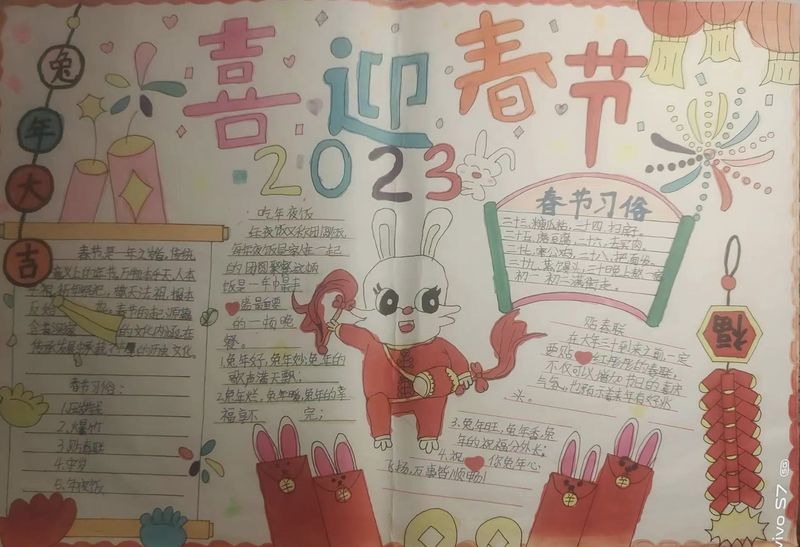 喜迎春节
2023
兔年大吉
春节是一年之岁首，传统
意义上的年节。万物本乎天，人本
乎祖，祈年
敬天法祖，报本
反始
春节的起源蕴
含着深邃
的文化内涵，在
传承发展中承载了
的历史文化
春节习俗：
1.压岁钱
2.爆竹
3.贴春联
4.守岁
5.年夜饭
吃年夜饭
年夜饭又称团圆饭
每年夜饭是家人在一起
的团圆聚餐，这顿
饭是一年中最丰
盛最重要
的一顿晚
餐。
1.兔年好，兔年妙，兔年的
歌声满天飘；
2.兔年烂，兔年
，兔年的幸
福享不 完；
3.兔年旺，兔年香，兔
年的祝福分外长；
4.祝 你兔年心
飞扬，万事皆顺畅！
春节习俗
二十三，糖瓜粘，二十四，扫房子。
二十五，磨豆腐，二十六，去买肉。
二十七，宰公鸡，二十八，把面发。
二十九，蒸馒头，三十晚上熬一宿
初一、初二满街走。
贴春联
在大年三十到来之前，一定
要贴 红彤彤的春联，
不仅可以增加节日的喜庆
福
vivo S7